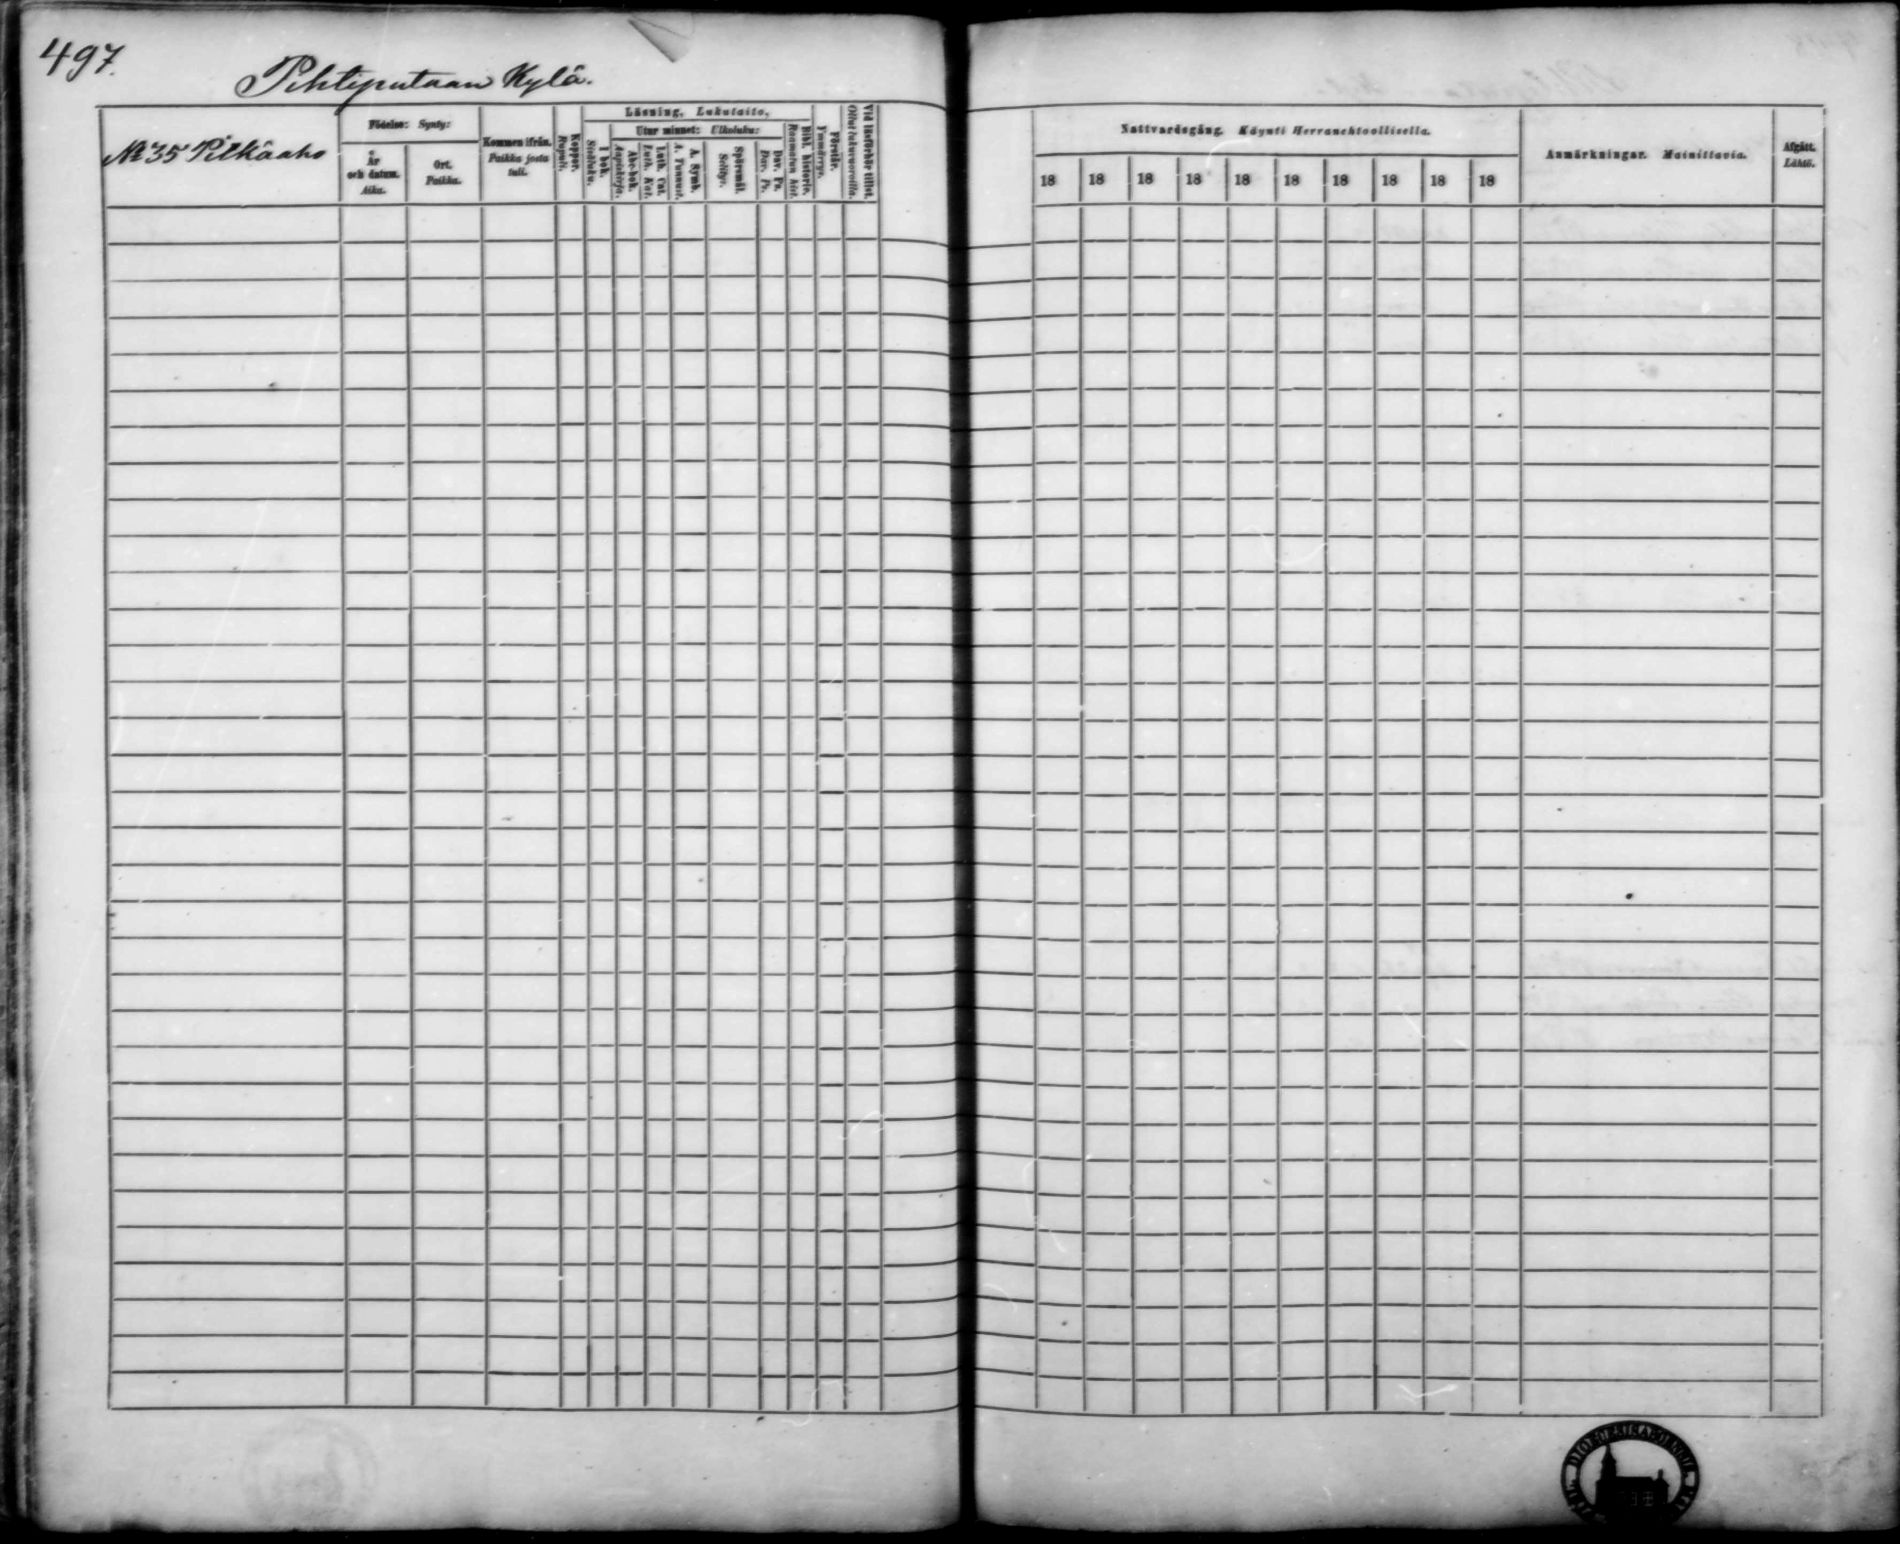 497.
Pihtiputaan Kylä.
№ 35 Pitkäaho
Födelse: Synty:
År
och datum.
Aika.
Ort.
Paikka.
Kommen ifrån.
Paikka josta
tuli.
Koppor.
Rupuli.
Läsning, Lukutaito,
I bok.
Sisäluku.
Utur minnet: Ulkoluku:
Abc-bok.
Aapiskirja.
Luth. Cat.
Luth. Kat.
A. Symb.
A. Tunnust.
Spörsmål.
Selitys.
Dav. Ps.
Dav. Ps.
Bibl. historie.
Raamatun hist.
Förstår.
Ymmärrys.
Vid läseförhör tillst.
Ollut lukuvuorolla.
Nattvardsgång. Käynti Herranehtoollisella.
18 18 18 18 18 18 18 18 18 18
Anmärkningar. Mainittavia.
Afgått.
Lähtö.